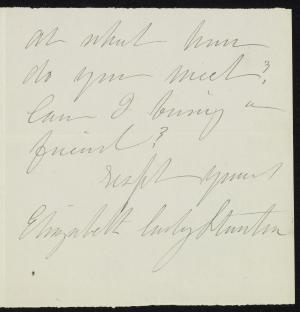 At what hour
do you meet?
Can I bring a
friend?
respt yours
Elizabeth Cady Stanton